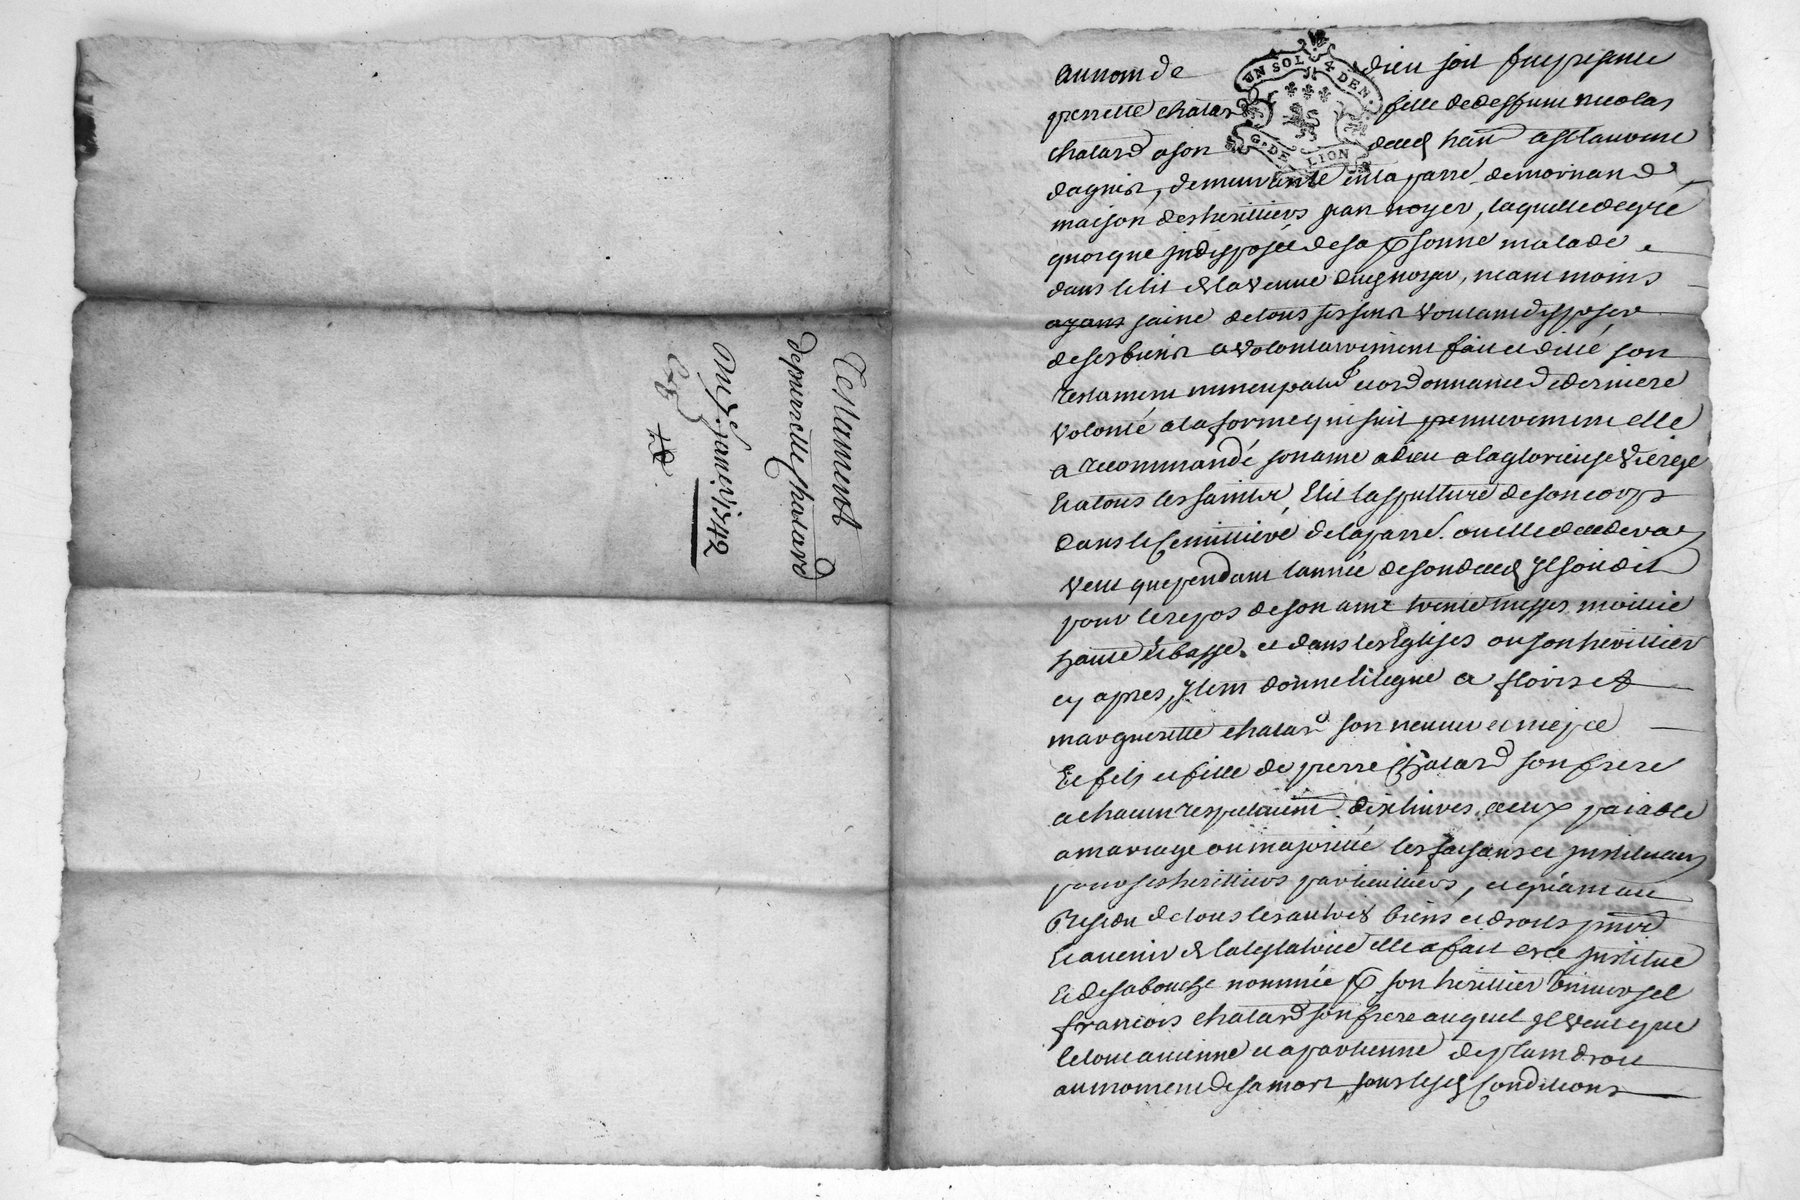 Testament
de pierrette Chatard
Du 8e. Janvier 1742
UN SOL 4 DEN.
G. DE LION
au nom de dieu soit fut presente
pierrette chatard fille de deffunt nicolas
chatard a son deces
demeurante en la parre de mornand
maison des herittiers jean noyer, laquelle de gré
quoique indisposée de sa personne malade
dans le lit de la veuve dud noyer, neantmoins
ayant saine de tous ses sens voulant disposer
de ses biens a volontairement fait et dicté son
testament nuncupatif et ordonnance de derniere
volonté a la forme qui suit premierement elle
a recommandé son ame a dieu a la glorieuse vierge
Et a tous les saints, Elit la sepulture de son corps
dans le Cemittiere de la parre. ou elle decedera
veut que pendant l'année de son deces Il soit dit
pour le repos de son ame trente messes moittié
haute Et basse. et dans les Eglises ou son herittier
cy apres, Item donne et legue a floris et
marguerette chatard son neuveu et niepce
Et fils et fille de pierre Chatard son frere
a chacun respectivemt. dix livres. a eux paiable
a mariage ou majorité les faisant et instituant
pour ses herittiers particulliers, et quant au
Residu de tous les autres biens et droits pnts
Et avenir de la testatrice elle a fait et institue
Et de sa bouche nommée p son herittier universel
francois chatard son frere auquel Il veut que
le tout avienne et apartienne de plain droit
au moment de sa mort, sous les conditions